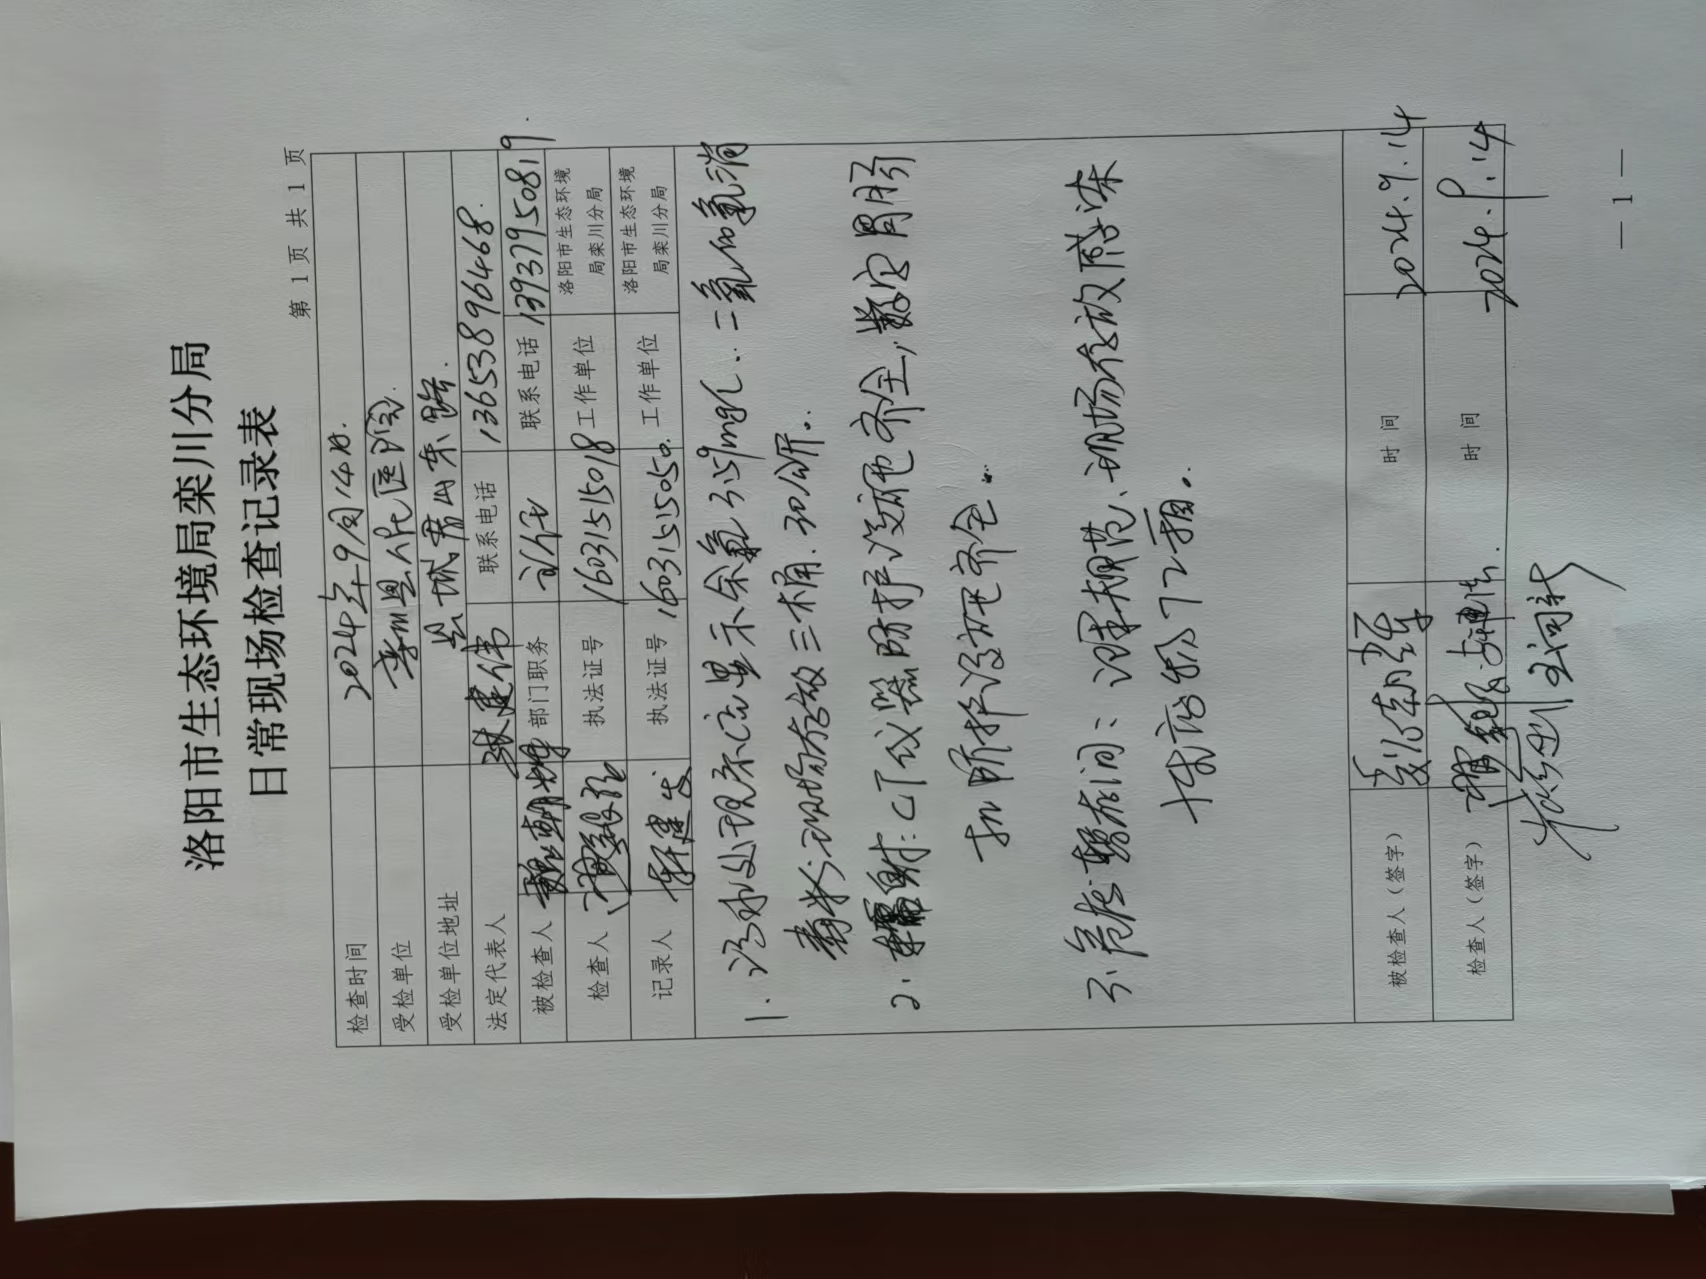 洛阳市生态环境局栾川分局
日常现场检查记录表
第 1 页 共 1 页
检查时间 2024年9月14日.
受检单位 栾川县人民医院
受检单位地址 县城君山东路.
法定代表人 建伟 联系电话 13653896468.
被检查人 部门职务 联系电话 13937950819.
检查人 执法证号 16031515018 工作单位 洛阳市生态环境局栾川分局
记录人 执法证号 16031515050. 工作单位 洛阳市生态环境局栾川分局
1. 污水处理显示余氯3.59mg/L. 二氧化氯消
毒 现场存放三桶. 30公斤.
2. 辐射: CT仪器防护设施齐全, 数字胃肠
机 防护设施齐全.
3. 危废暂存间: 管理规范、现场存放感染
72箱.
被检查人(签字) 时 间 2024.9.14
检查人(签字) 时 间 2024.9.14
— 1 —